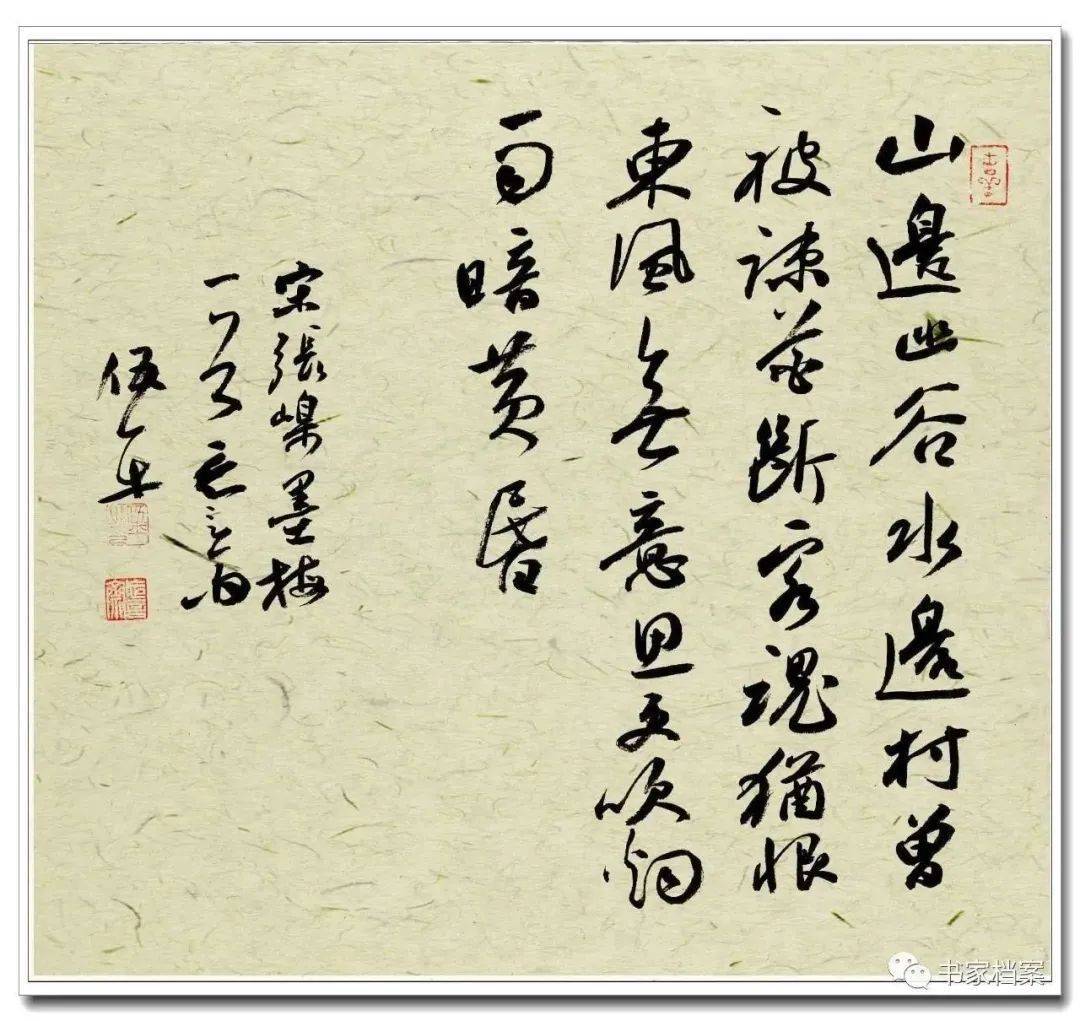 山邊幽谷水邊村曾
被疎花斷客魂猶恨
東風無意思更吹烟
雨暗黄昏
宋張嵲墨梅
一
书家档案